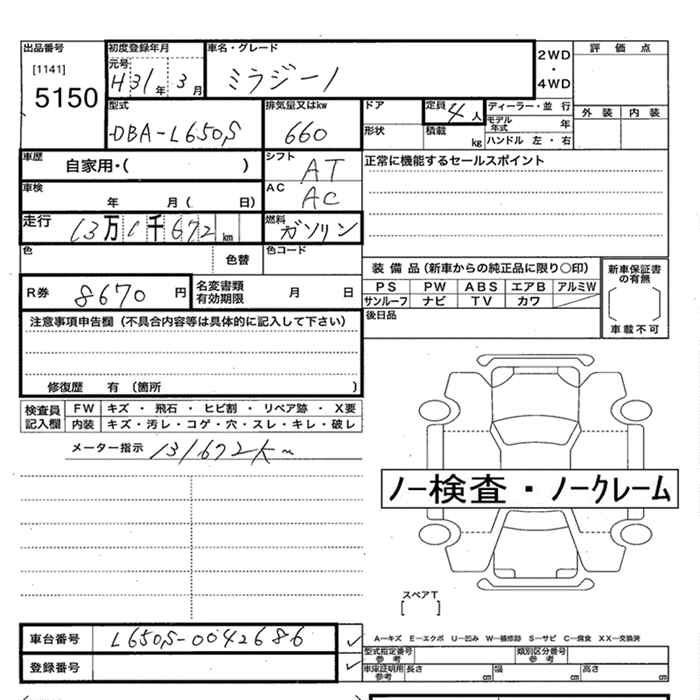 出品番号
[1141]
5150
初度登録年月
元号
H31年 3月
車名・グレード
ミラジーノ
2WD
・
4WD
評価点
外装 内装
型式
DBA-L650S
排気量又はkw
660
ドア
形状
定員 4人
積載 kg
ディーラー・並行
モデル年式 年
ハンドル 左・右
車歴
自家用・( )
シフト AT
AC AC
正常に機能するセールスポイント
車検
年 月( 日)
走行 13万1千672km
燃料 ガソリン
色
色替
色コード
R券 8670 円
名変書類有効期限 月 日
装備品(新車からの純正品に限り○印)
PS PW ABS エアB アルミW
サンルーフ ナビ TV カワ
新車保証書の有無
車載不可
後日品
注意事項申告欄(不具合内容等は具体的に記入して下さい)
修復歴 有(箇所 )
検査員記入欄
FW キズ・飛石・ヒビ割・リペア跡・X要
内装 キズ・汚レ・コゲ・穴・スレ・キレ・破レ
メーター指示 131672km
ノー検査・ノークレーム
スペアT
[ ]
車台番号 L650S-0042686
登録番号
A−キズ E−エクボ U−凹み W−補修跡 S−サビ C−腐食 XX−交換済
型式指定番号 参考
類別区分番号 参考
車庫証明用 参考 長さ cm 幅 cm 高さ cm